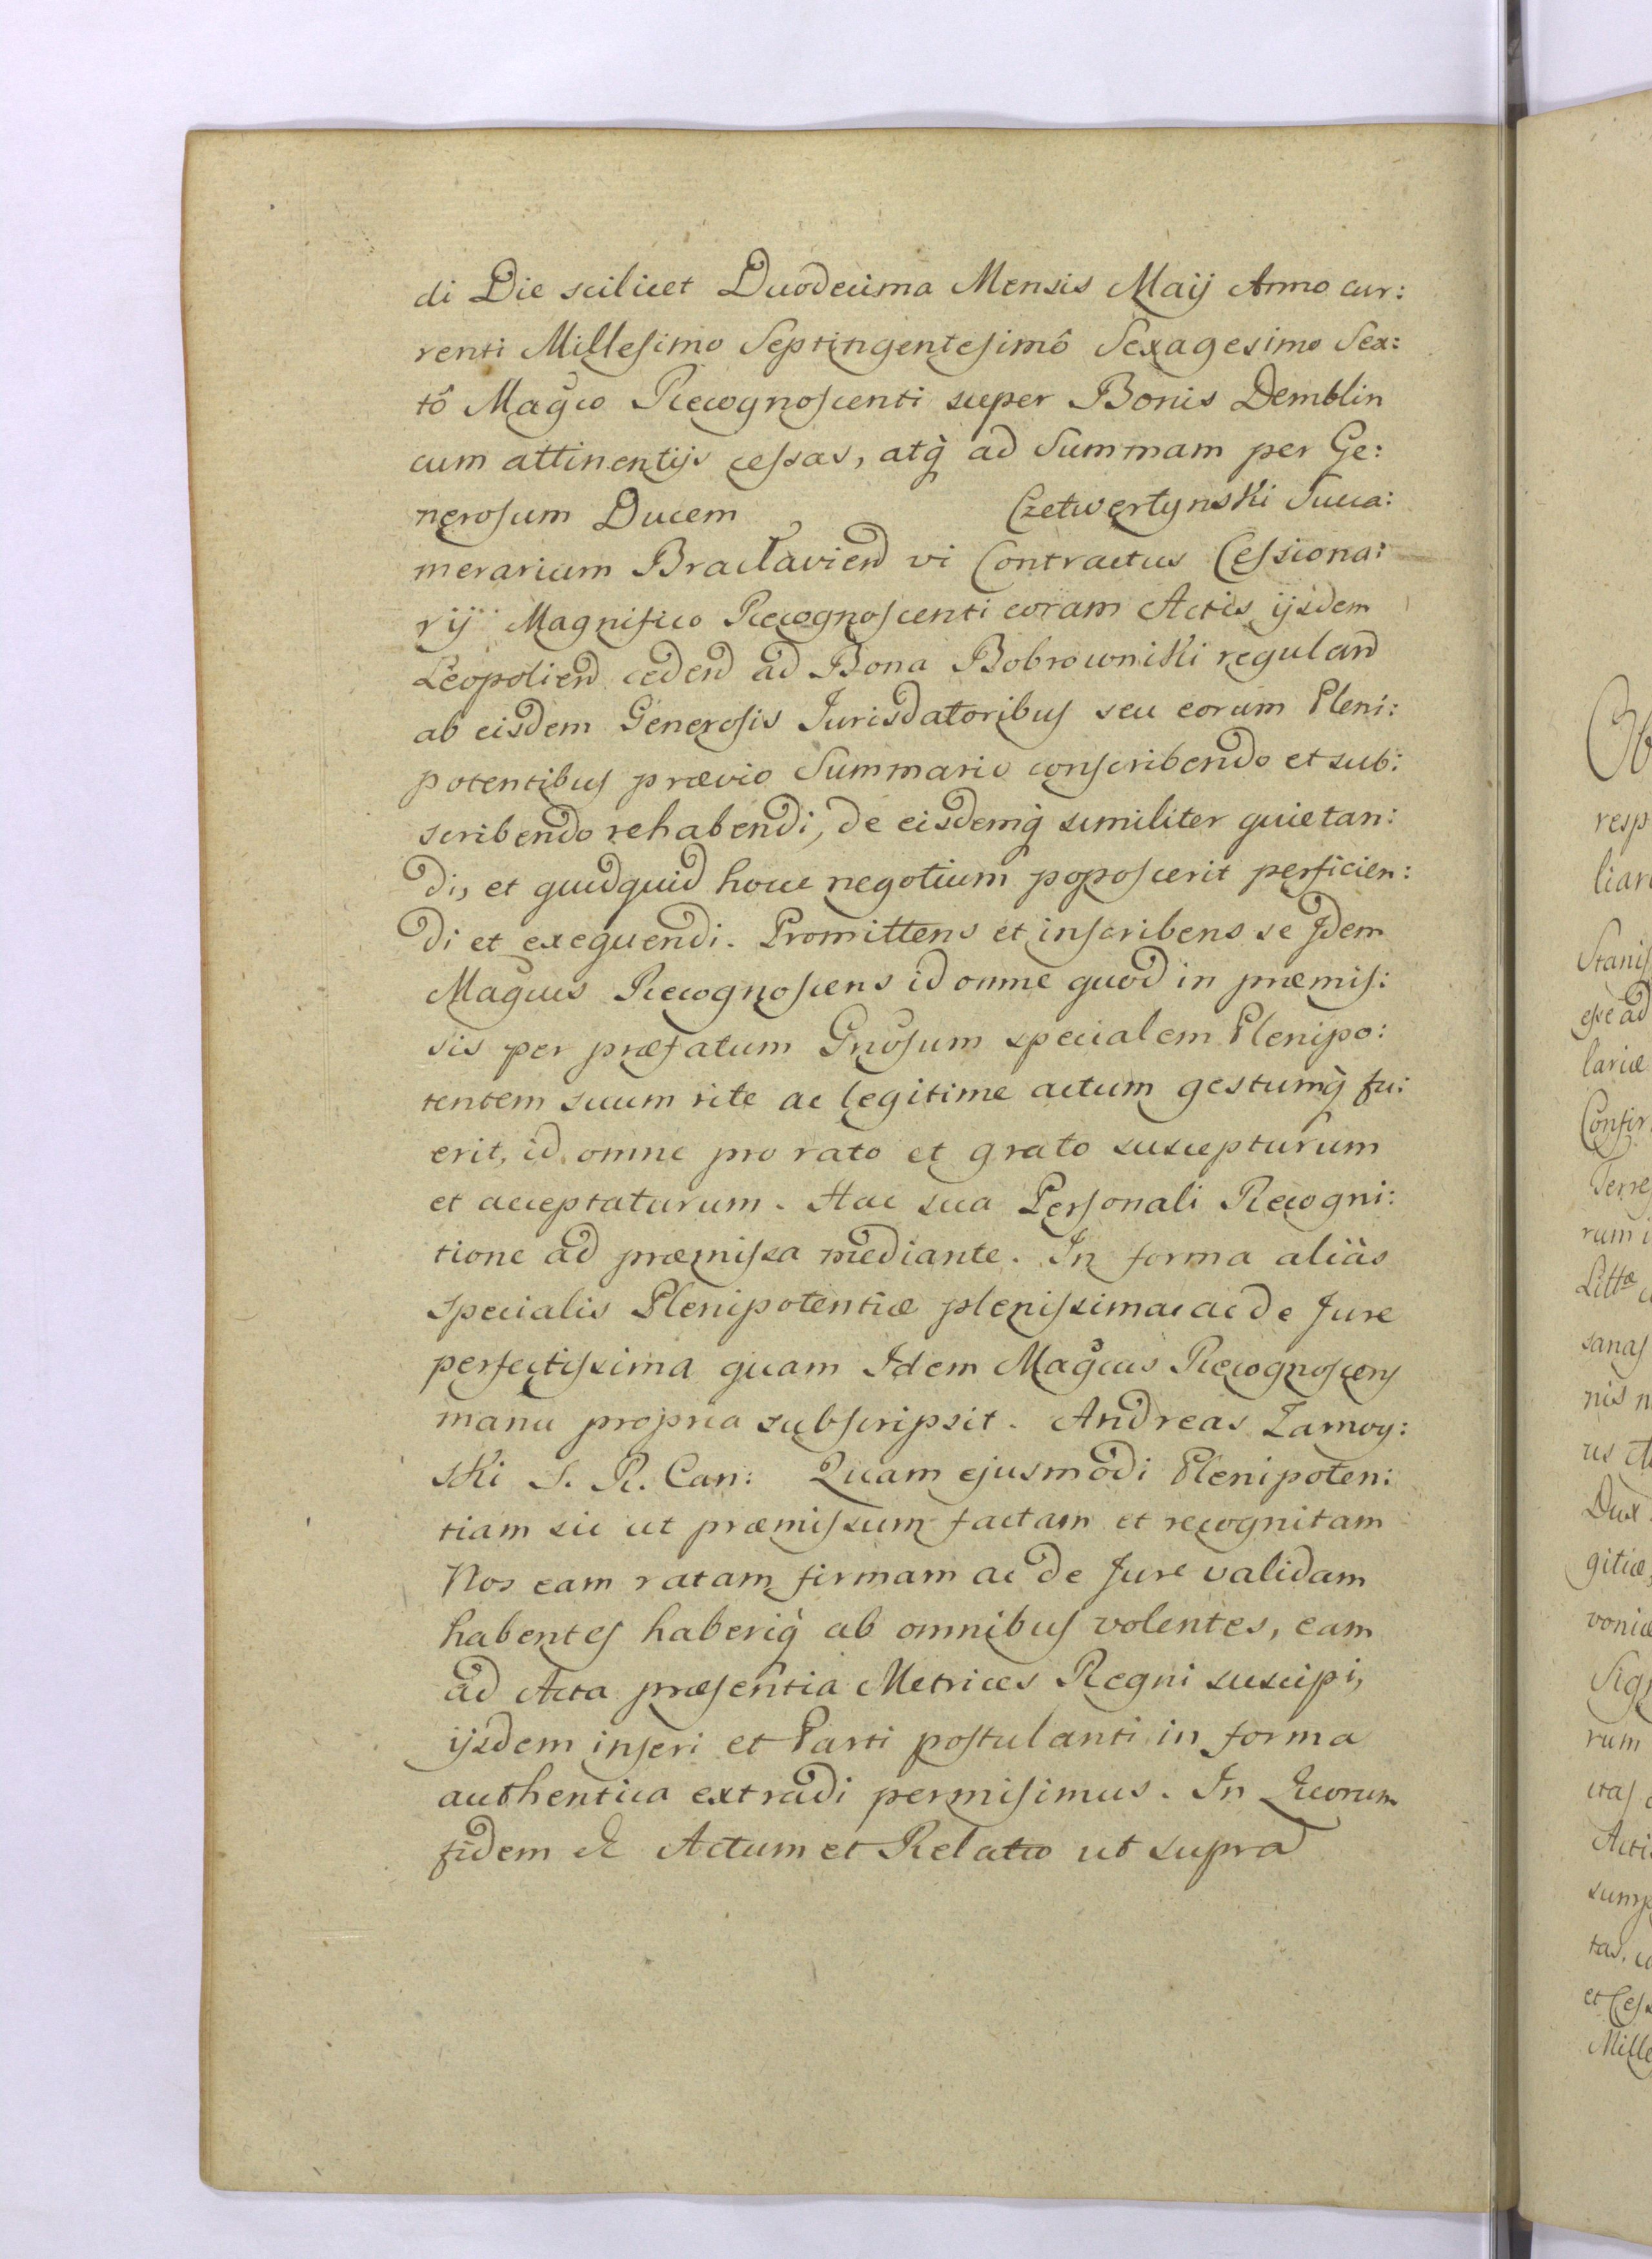 di Die scilicet Duodecima Mensis Maij Anno cur:
renti Millesimo Septingentesimô Sexagesimo Sex:
tô Magco Recognoscenti super Bonis Demblin
cum attinentijs cessas, atq̀ ad Summam per Ge:
nerosum Ducem Czetwertynski Succa:
merarium Braclavien vi Contractus Cessiona:
rij Magnifico Recognoscenti coram Actis ijsdem
Leopolien ceden ad Bona Bobrowniki regulan
ab eisdem Generosis Jurisdatoribus seu eorum Pleni:
potentibus prævio Summario conscribendo et sub:
scribendo rehabendi, de eisdemq̀ similiter quietan:
di, et quidquid hocce negotium poposcerit perficien:
di et exequendi. Promittens et inscribens se Jdem
Magcus Recognoscens id omne quod in præmis:
sis per præfatum Gnosum specialem Plenipo:
tentem suum rite ac legitime actum gestumq̀ fu:
erit, id omne pro rato et grato suscepturum
et acceptaturum. Hac sua Personali Recogni:
tione ad præmissa mediante. In forma aliàs
specialis Plenipotentiæ plenissimæ ac de Jure
perfectissima quam Idem Magcus Recognoscens
manu propria subscripsit. Andreas Zamoy:
ski S. R. Can: Quam ejusmodi Plenipoten:
tiam sic ut præmissum factam et recognitam
Nos eam ratam firmam ac de Jure validam
habentes haberiq̀ ab omnibus volentes, eam
ad Acta præsentia Metrices Regni suscipi,
ijsdem inseri et Parti postulanti in forma
authentica extradi permisimus. In Quorum
fidem & Actum et Relatio ut supra
Ob
resp
liar
Stanis
esse ad
lariæ
Confir
Terre
rum
Littæ
sanas
nis
us
Dux
gitiæ,
voniæ
Sig
rum
itas
Acti
sump
tas.
et Ces
Mille